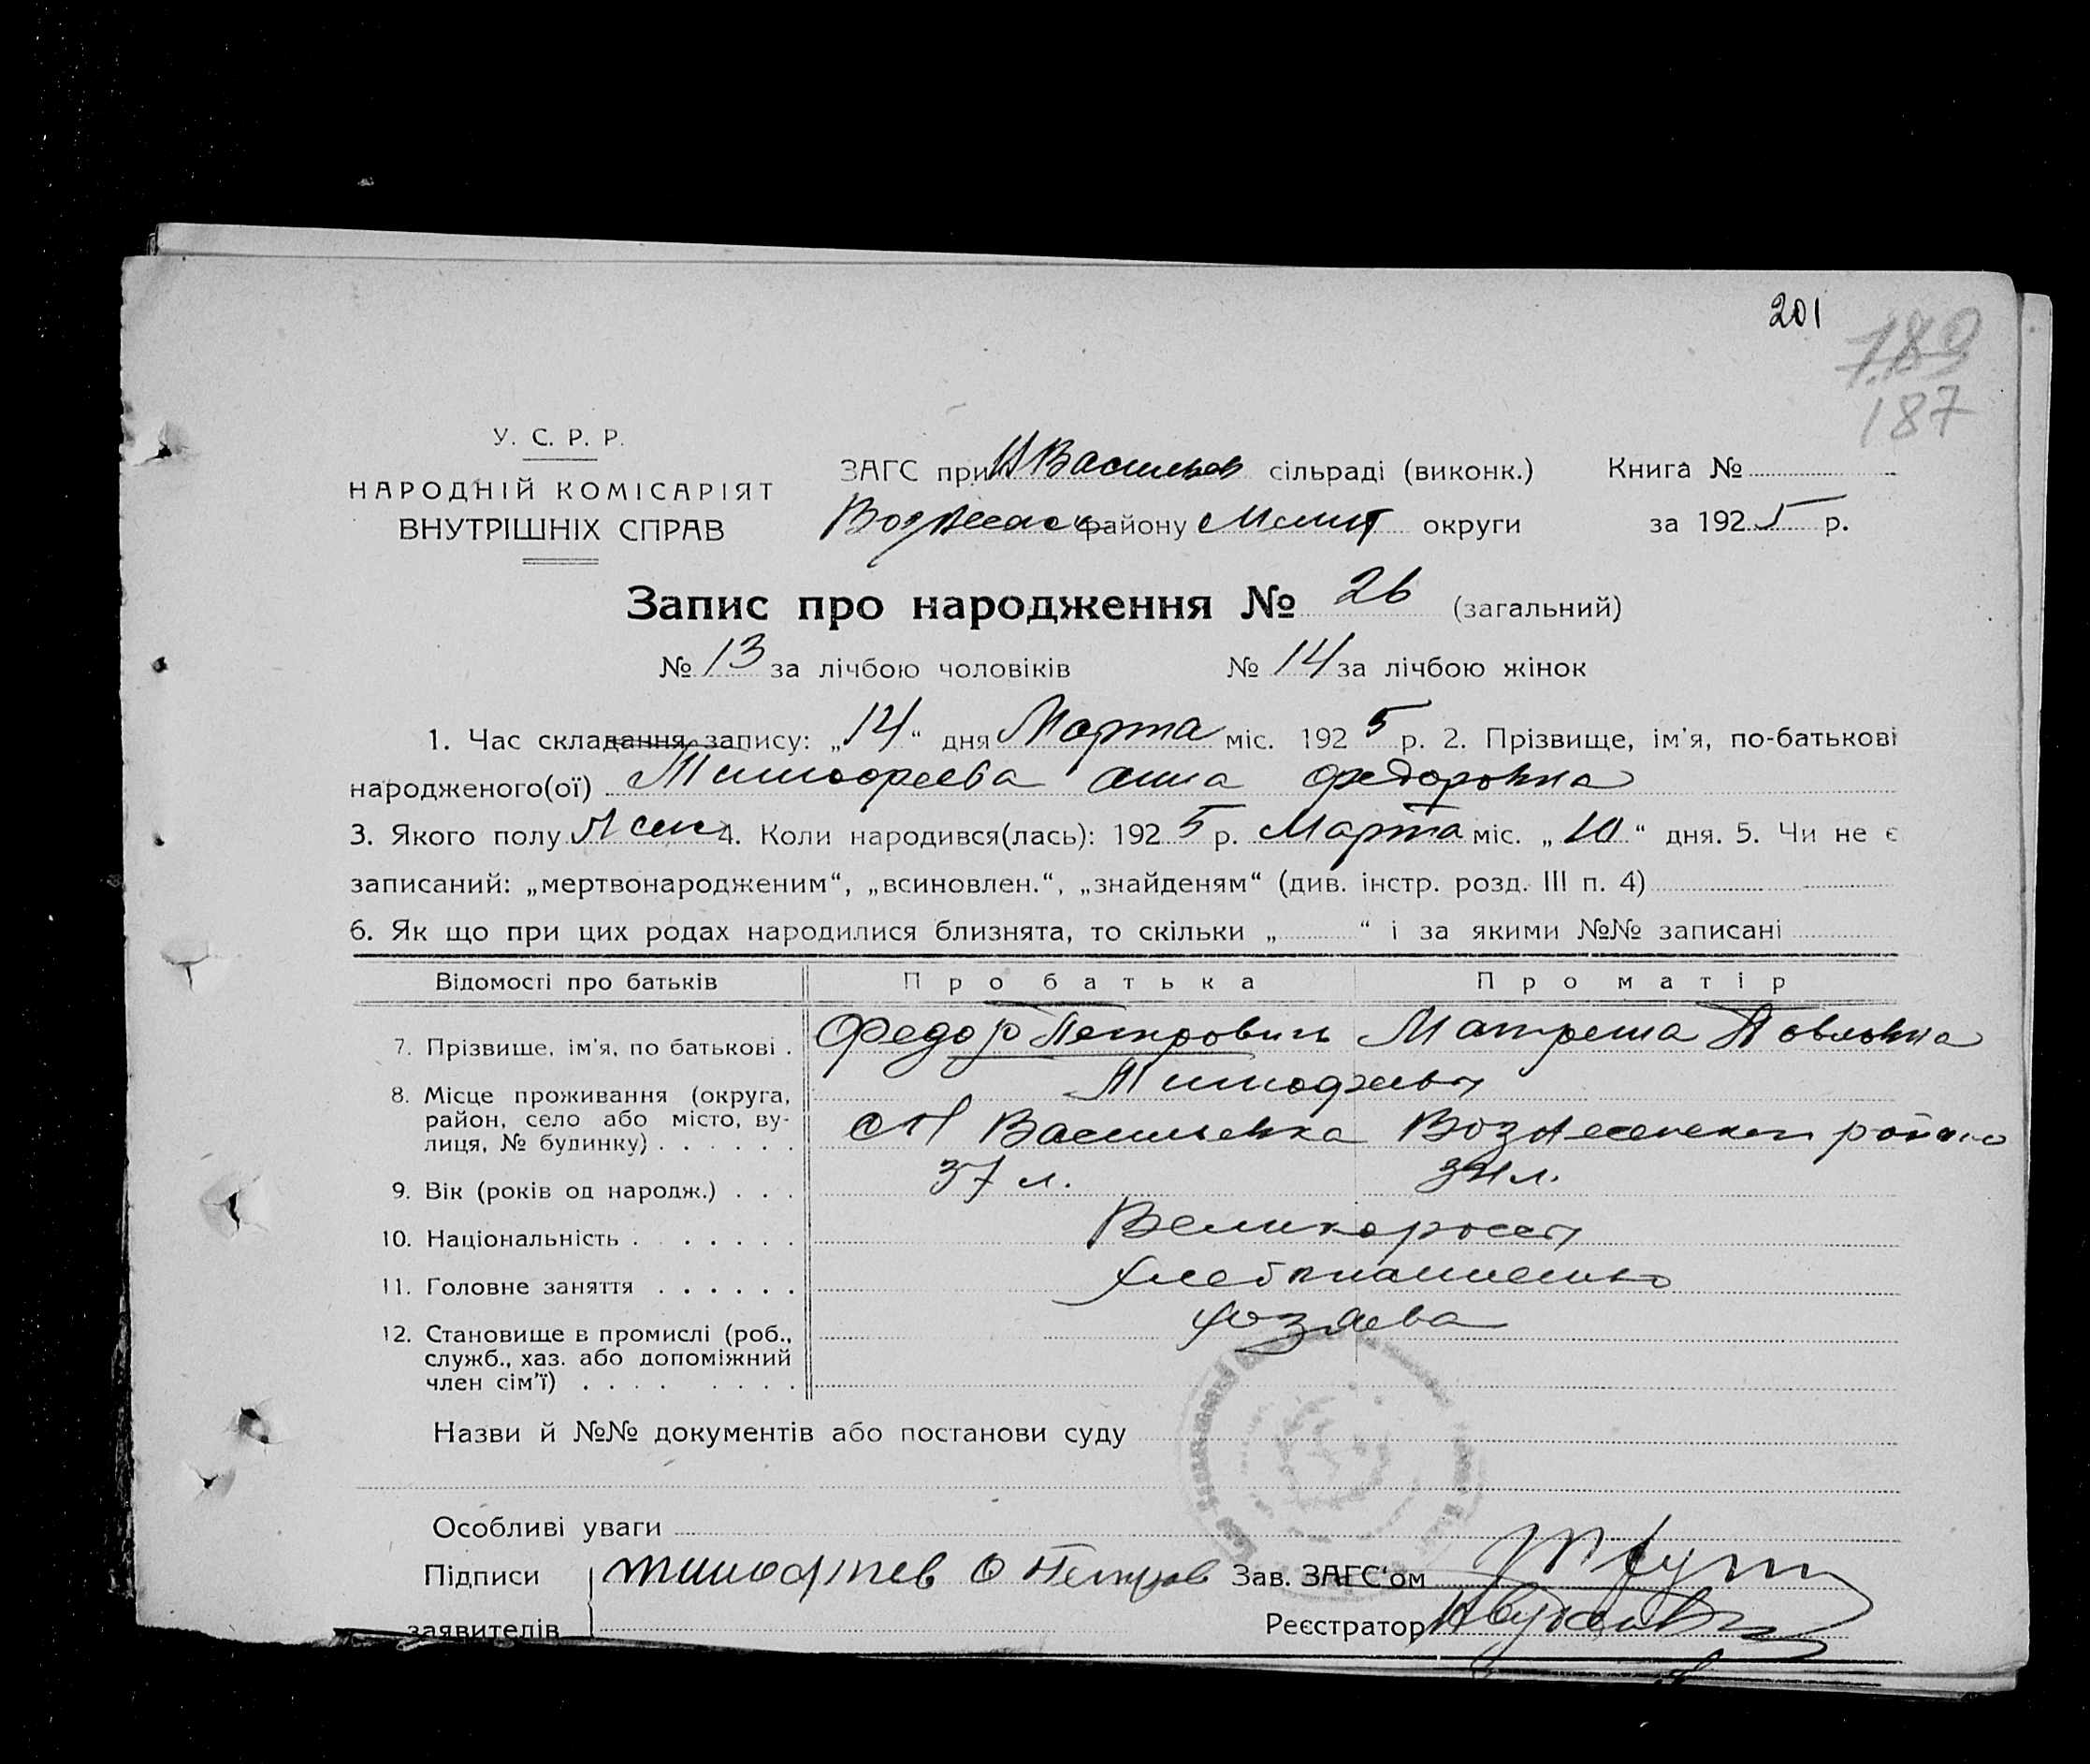 201
189
187
У. С. Р. Р.
НАРОДНІЙ КОМІСАРІЯТ
ВНУТРІШНІХ СПРАВ
ЗАГС при Н Васильев сільраді (виконк.) Книга №
району Мелит округи за 1925 р.
Запис про народження № 26 (загальний)
№ 13 за лічбою чоловіків № 14 за лічбою жінок
1. Час складання запису: „14“ дня Марта міс. 1925 р. 2. Прізвище, ім'я, по-батькові
народженого(ої) Тимофеева Анна Федоровна
3. Якого полу Жен 4. Коли народився(лась): 1925 р. Марта міс. „10“ дня. 5. Чи не є
записаний: „мертвонародженим“, „всиновлен.“, „знайденям“ (див. інстр. розд. III п. 4)
6. Як що при цих родах народилися близнята, то скільки „ “ і за якими №№ записані
Відомості про батьків Про батька Про матір
7. Прізвище, ім'я, по батькові . Федор Петрович Матреша Павловна
Тимофеевы
8. Місце проживання (округа,
район, село або місто, ву-
лиця, № будинку) . . . . . . Васильевка Вознесенского района
9. Вік (років од народж.) . . . 37 л. л.
10. Національність . . . . . . . Великороссы
11. Головне заняття . . . . . . хлебопашество
12. Становище в промислі (роб., хозяева
служб., хаз. або допоміжний
член сім'ї) . . . . . . . .
Назви й №№ документів або постанови суду
Особливі уваги
Підписи Тимофеев Ф Петров Зав. ЗАГС'ом
заявителів Реєстратор